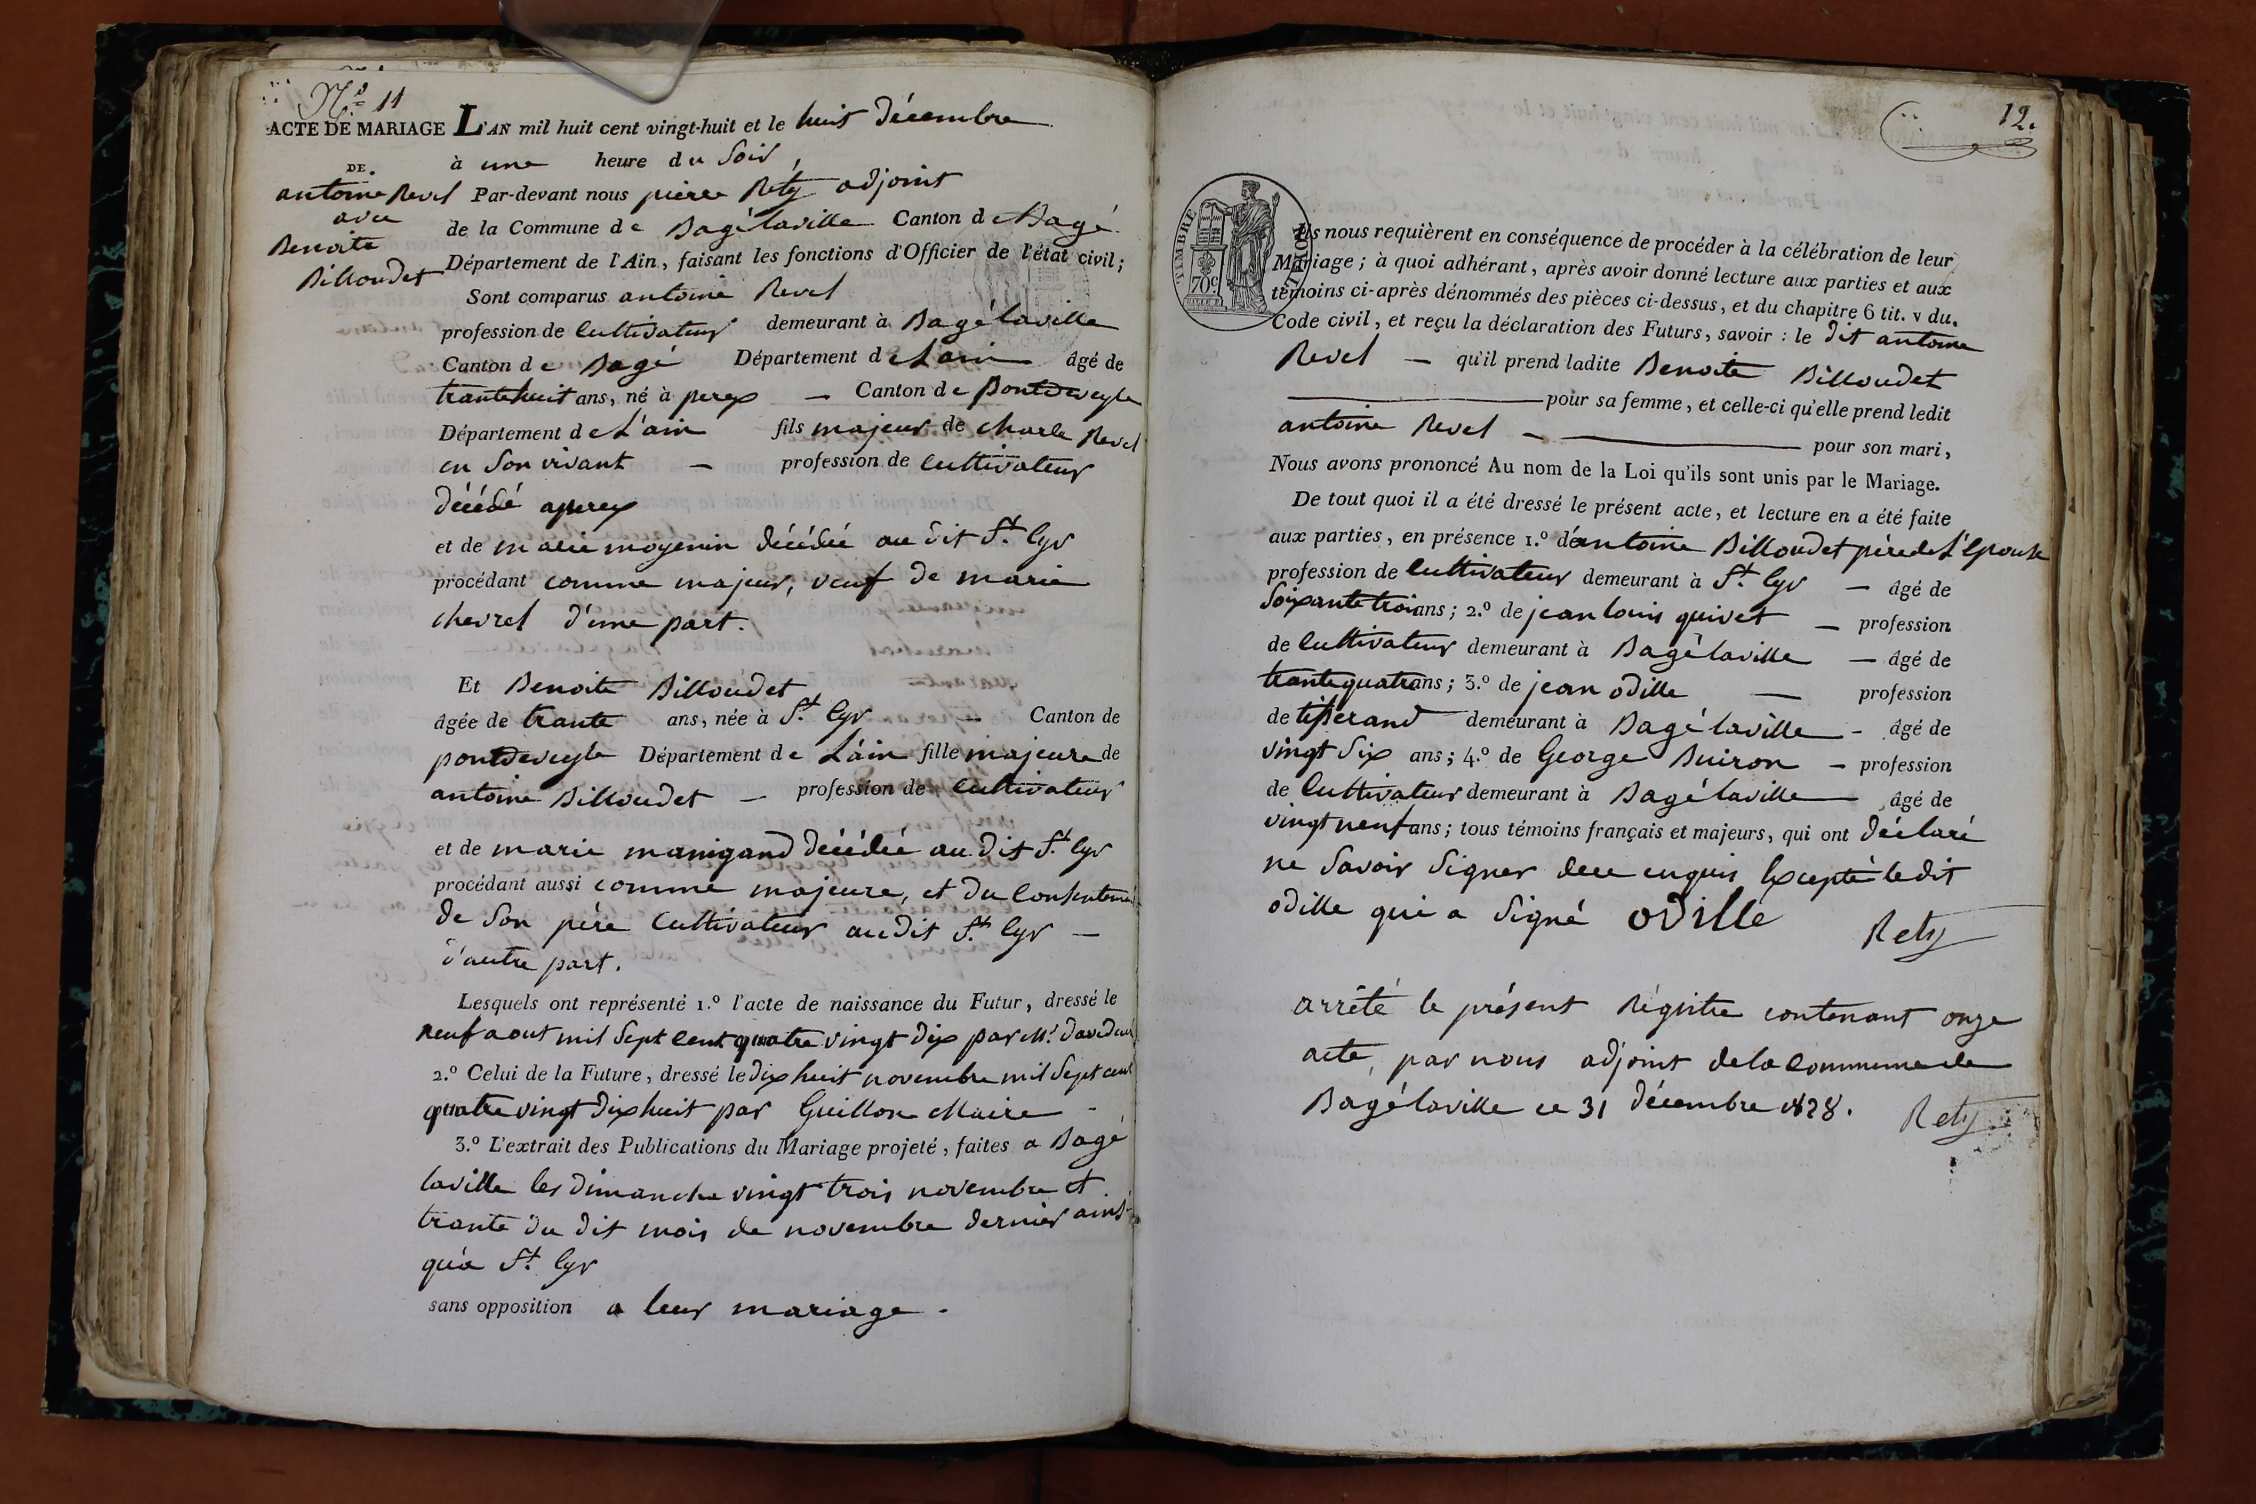 N.º 11
ACTE DE MARIAGE
DE
antoine Revel
avec
Benoite
Billoudet
L'AN mil huit cent vingt-huit et le huit décembre
à une heure du Soir,
Par-devant nous pierre Rety adjoint
de la Commune de Bagélaville Canton de Bagé
Département de l'Ain, faisant les fonctions d'Officier de l'état civil;
Sont comparus antoine Revel
profession de Cultivateur demeurant à Bagélaville
Canton de Bagé Département de L'ain âgé de
trantehuit ans, né à perex — Canton de pontdeveyle
Département de L'ain fils majeur de charle Revel
en Son vivant — profession de Cultivateur
décédé aperex
et de marie moyenin décédée au dit St. Cyr
procédant comme majeur, veuf de marie
chevrel d'une part.
Et Benoite Billoudet
âgée de trante ans, née à St. Cyr — Canton de
pontdeveyle Département de L'ain fille majeure de
antoine Billoudet — profession de Cultivateur
et de marie manigand décédée au dit St. Cyr
procédant aussi comme majeure, et du Consenteme
de Son père Cultivateur audit St. Cyr —
d'autre part.
Lesquels ont représenté 1.º l'acte de naissance du Futur, dressé le
neuf aout mil Sept cent quatre vingt dix par Mr.
2.º Celui de la Future, dressé le dix huit novembre mil Sept cent
quatre vingt dix huit par Guillon Maire -
3.º L'extrait des Publications du Mariage projeté, faites a Bagé
laville les dimanche vingt trois novembre et
trante du dit mois de novembre dernier ainsi
qu'à St. Cyr
sans opposition a leur mariage.
12.
TIMBRE ROYAL
70c
Ils nous requièrent en conséquence de procéder à la célébration de leur
Mariage; à quoi adhérant, après avoir donné lecture aux parties et aux
témoins ci-après dénommés des pièces ci-dessus, et du chapitre 6 tit. v du
Code civil, et reçu la déclaration des Futurs, savoir: le dit antoine
Revel — qu'il prend ladite Benoite Billoudet
pour sa femme, et celle-ci qu'elle prend ledit
antoine Revel — pour son mari,
Nous avons prononcé Au nom de la Loi qu'ils sont unis par le Mariage.
De tout quoi il a été dressé le présent acte, et lecture en a été faite
aux parties, en présence 1.º de antoine Billoudet père de L'Epouse
profession de Cultivateur demeurant à St. Cyr — âgé de
Soixante trois ans; 2.º de jean louis quivet — profession
de Cultivateur demeurant à Bagélaville — âgé de
trantequatre ans; 3.º de jean odille — profession
de tisserand demeurant à Bagélaville - âgé de
vingt Six ans; 4.º de George Buiron — profession
de Cultivateur demeurant à Bagélaville — âgé de
vingt neuf ans; tous témoins français et majeurs, qui ont déclaré
ne Savoir Signer dece enquis Excepté le dit
odille qui a Signé odille
Rety
arrêté le présent Régistre contenant onze
acte, par nous adjoint dela commune de
Bagélaville ce 31 décembre 1828.
Rety